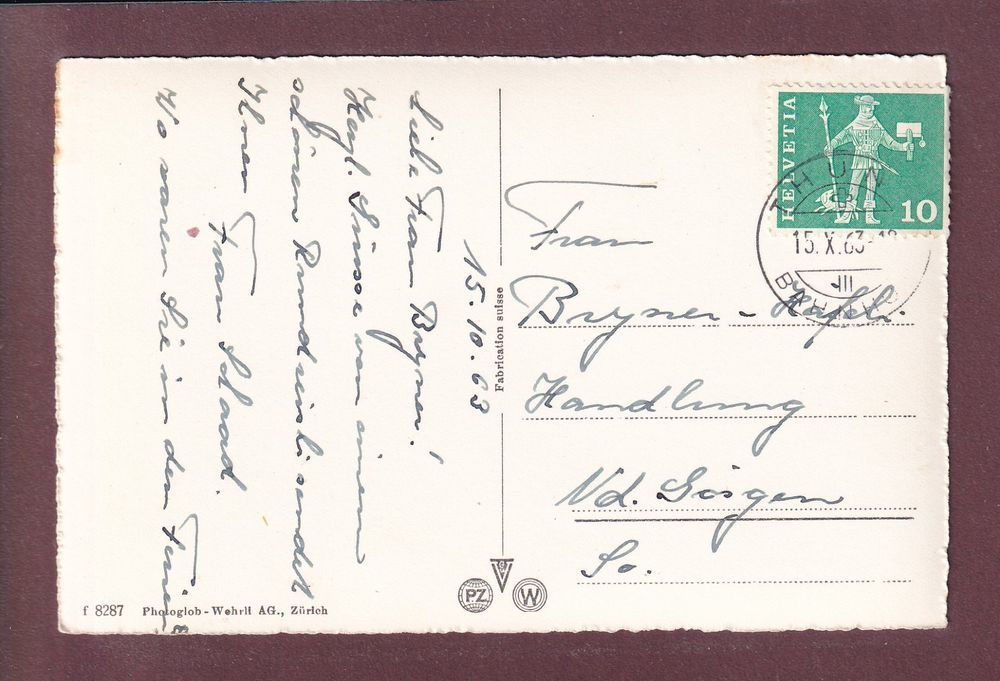 15.10.63
Liebe Frau Bryner!
Herzl. Grüsse von einem
schönen Rundreisli sendet
Ihnen Frau Schaad.
Wo waren Sie in den Ferien
Fabrication suisse
HELVETIA
10
THUN
15.X.63-18
III
Frau
Bryner - Hafeli.
Handlung
Nd. Gösgen
So.
PZ
W
f 8287 Photoglob-Wehrli AG., Zürich